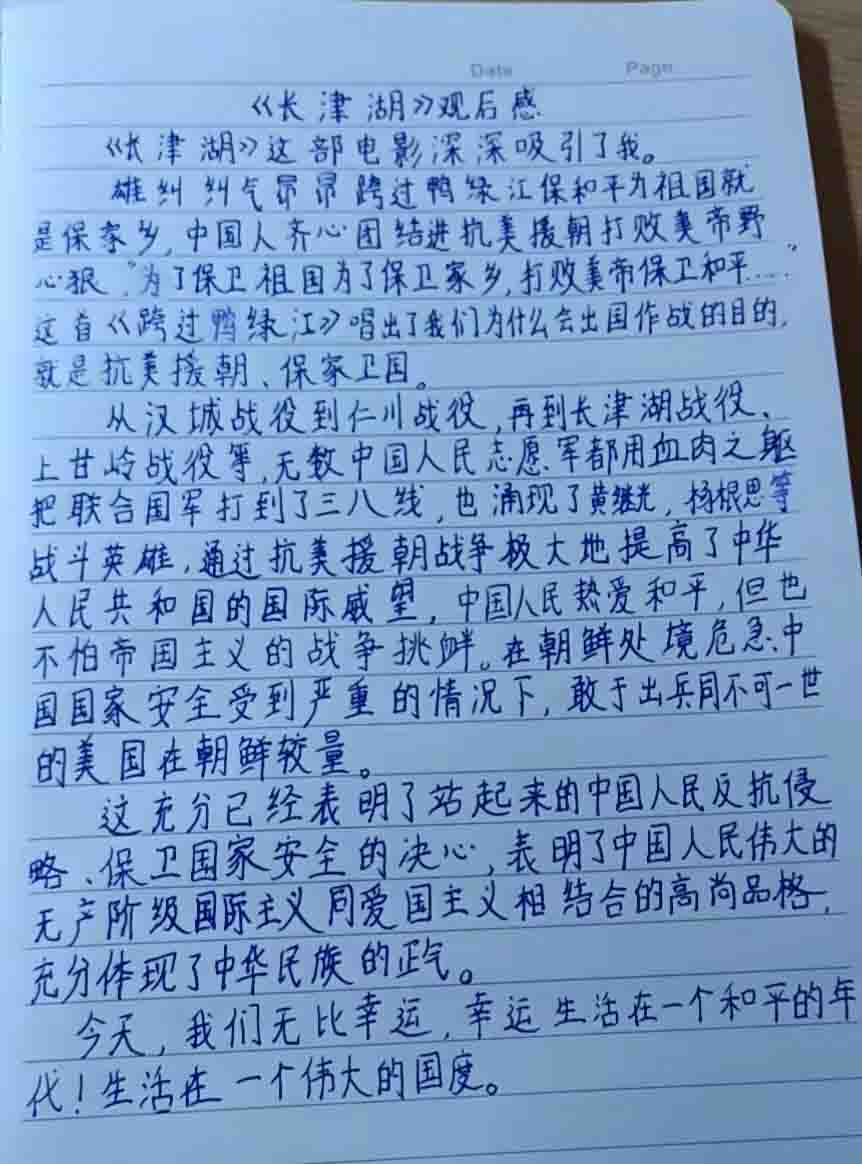 Date Page
《长津湖》观后感
《长津湖》这部电影深深吸引了我。
雄纠纠气昂昂跨过鸭绿江保和平为祖国就
是保家乡,中国人齐心团结进抗美援朝打败美帝野
心狠,"为了保卫祖国为了保卫家乡,打败美帝保卫和平....."
这首《跨过鸭绿江》唱出了我们为什么会出国作战的目的,
就是抗美援朝、保家卫国。
从汉城战役到仁川战役,再到长津湖战役、
上甘岭战役等,无数中国人民志愿军都用血肉之躯
把联合国军打到了三八线,也涌现了黄继光,杨根思等
战斗英雄,通过抗美援朝战争极大地提高了中华
人民共和国的国际威望,中国人民热爱和平,但也
不怕帝国主义的战争挑衅。在朝鲜处境危急、中
国国家安全受到严重的情况下,敢于出兵同不可一世
的美国在朝鲜较量。
这充分已经表明了站起来的中国人民反抗侵
略、保卫国家安全的决心,表明了中国人民伟大的
无产阶级国际主义同爱国主义相结合的高尚品格,
充分体现了中华民族的正气。
今天,我们无比幸运,幸运生活在一个和平的年
代!生活在一个伟大的国度。